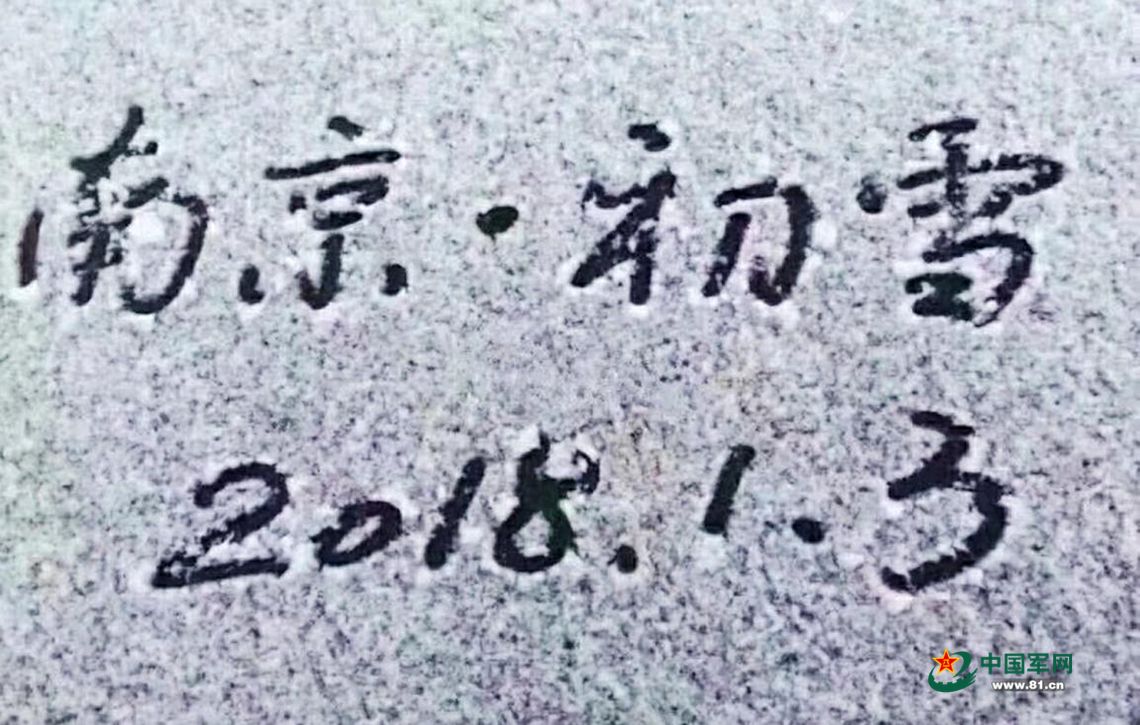 南京·初雪
2018.1.3
中国军网
www.81.cn